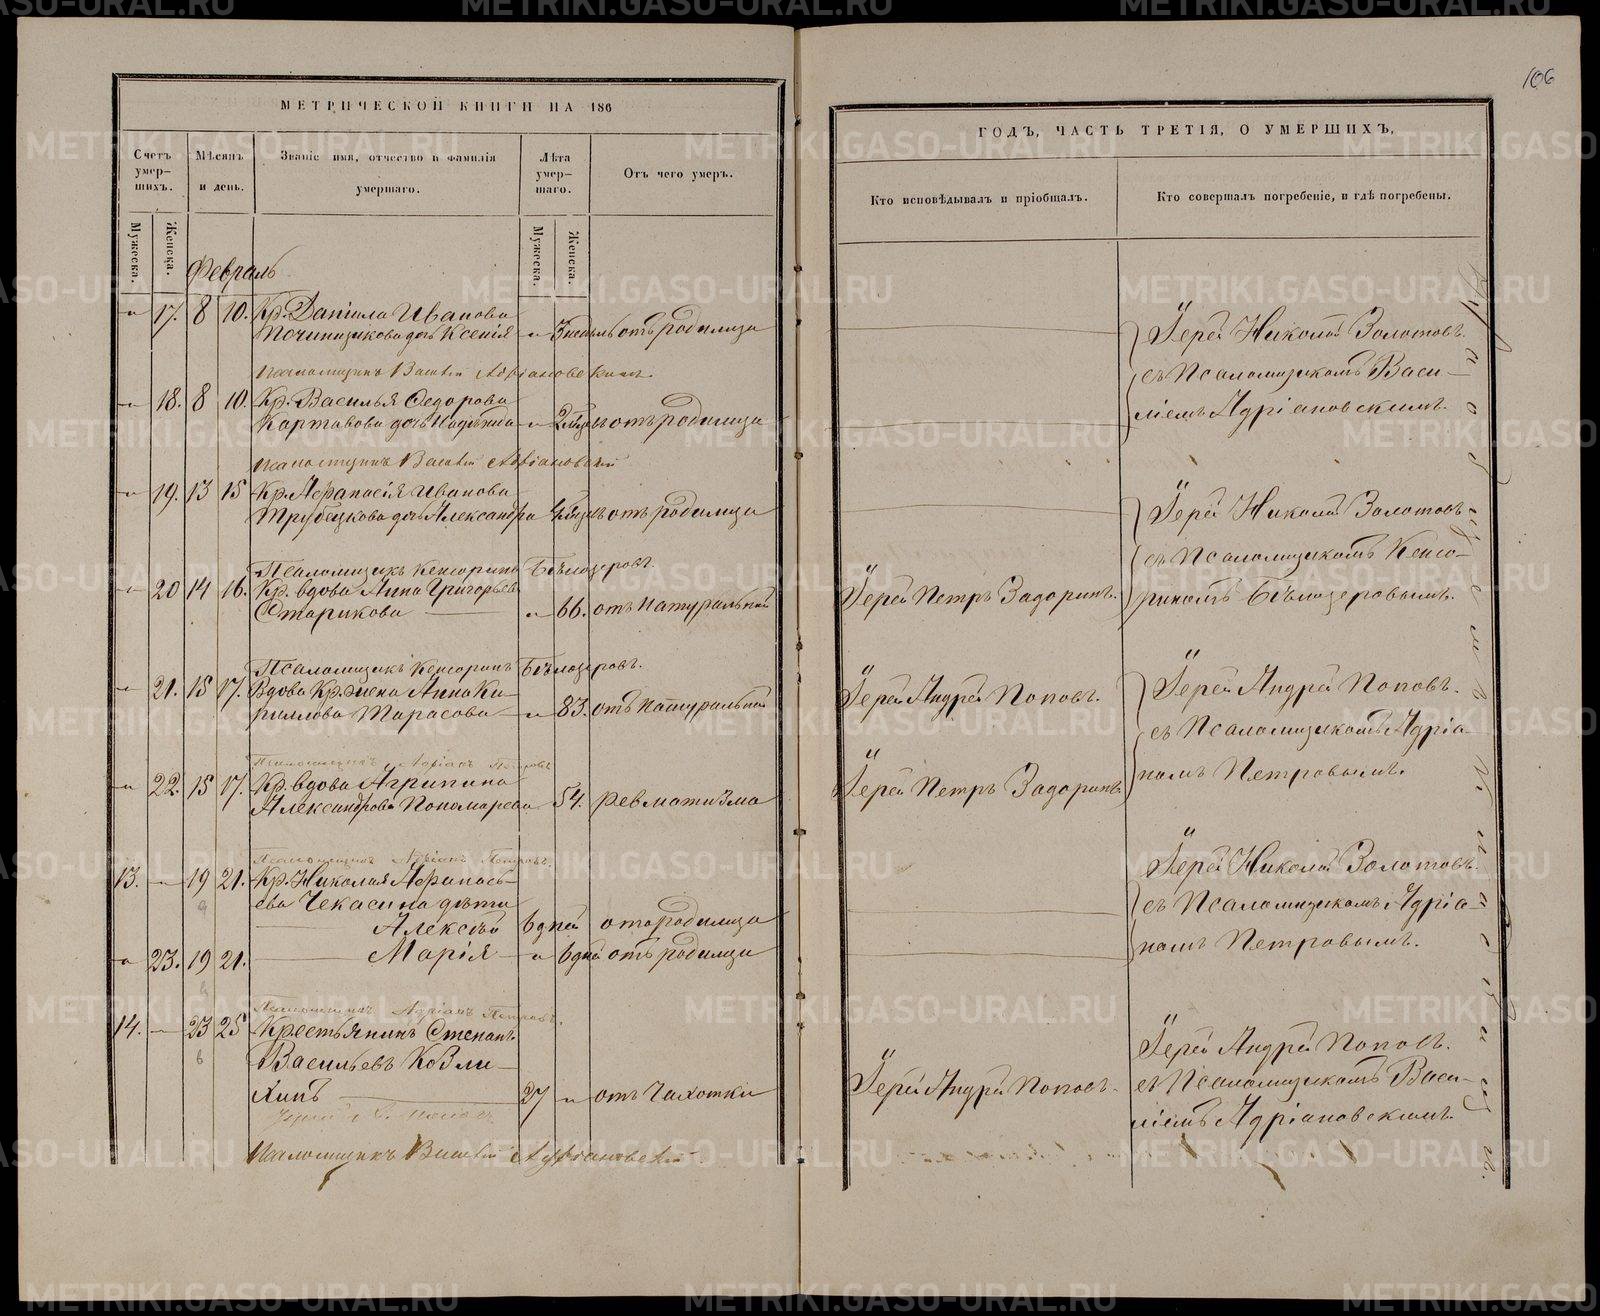 106
МЕТРИЧЕСКОЙ КНИГИ НА 186
Счетъ умер- шихъ.
Мѣсяцъ и день.
Званіе имя, отчество и фамилія умершаго.
Лѣта умер- шаго.
Отъ чего умеръ.
Мужеска.
Женска.
Мужеска.
Женска.
Февраль
17. 8 10. Кр. Даніила Иванова
Починщикова дочь Ксенія 3 недѣль отъ родимца
Псаломщикъ Василій Адріановскій.
18. 8 10. Кр. Василья Федорова
Картавова дочь Надежда 2 мѣц отъ родимца
Псаломщикъ Василій Адріановскій
19. 13 15 Кр. Афанасія Иванова
Трубецкова дочь Александра отъ родимца
Псаломщикъ Кенсоринъ Бѣлозеровъ.
20 14 16. Кр. вдова Анна Григорьева
Старикова 66. отъ натуральной
Псаломщикъ Кенсоринъ Бѣлозеровъ.
21. 15 17. Вдова Кр. жена Анна Ки-
риллова Тарасова 83. отъ натуральной
Псаломщикъ Адріанъ Петровъ
22. 15 17. Кр. вдова Агрипина
Александрова Пономарева 54. ревматизма
Псаломщикъ Адріанъ Петровъ.
13. 19 21. Кр. Николая Афанась-
ева Чекасина дѣти
Алексѣй 6 дней отъ родимца
23. 19 21. Марія 6 дней отъ родимца
Псаломщикъ Адріанъ Петровъ.
14. 23 25 Крестьянинъ Степанъ
Васильевъ Козли-
хинъ 27 отъ Чахотки
Псаломщикъ Василій Адріановскій
ГОДЪ, ЧАСТЬ ТРЕТІЯ, О УМЕРШИХЪ,
Кто исповѣдывалъ и пріобщалъ.
Кто совершалъ погребеніе, и гдѣ погребены.
Іерей Николай Золотовъ.
съ Псаломщикомъ Васи-
ліемъ Адріановскимъ.
Іерей Николай Золотовъ
съ Псаломщикомъ Кенсо-
Іерей Петръ Задоринъ.
риномъ Бѣлозеровымъ.
Іерей Андрей Поповъ.
Іерей Андрей Поповъ.
съ Псаломщикомъ Адріа-
номъ Петровымъ.
Іерей Петръ Задоринъ
Іерей Николай Золотовъ.
съ Псаломщикомъ Адріа-
номъ Петровымъ.
Іерей Андрей Поповъ.
Іерей Андрей Поповъ.
съ Псаломщикомъ Васи-
ліемъ Адріановскимъ.
METRIKI.GASO-URAL.RU